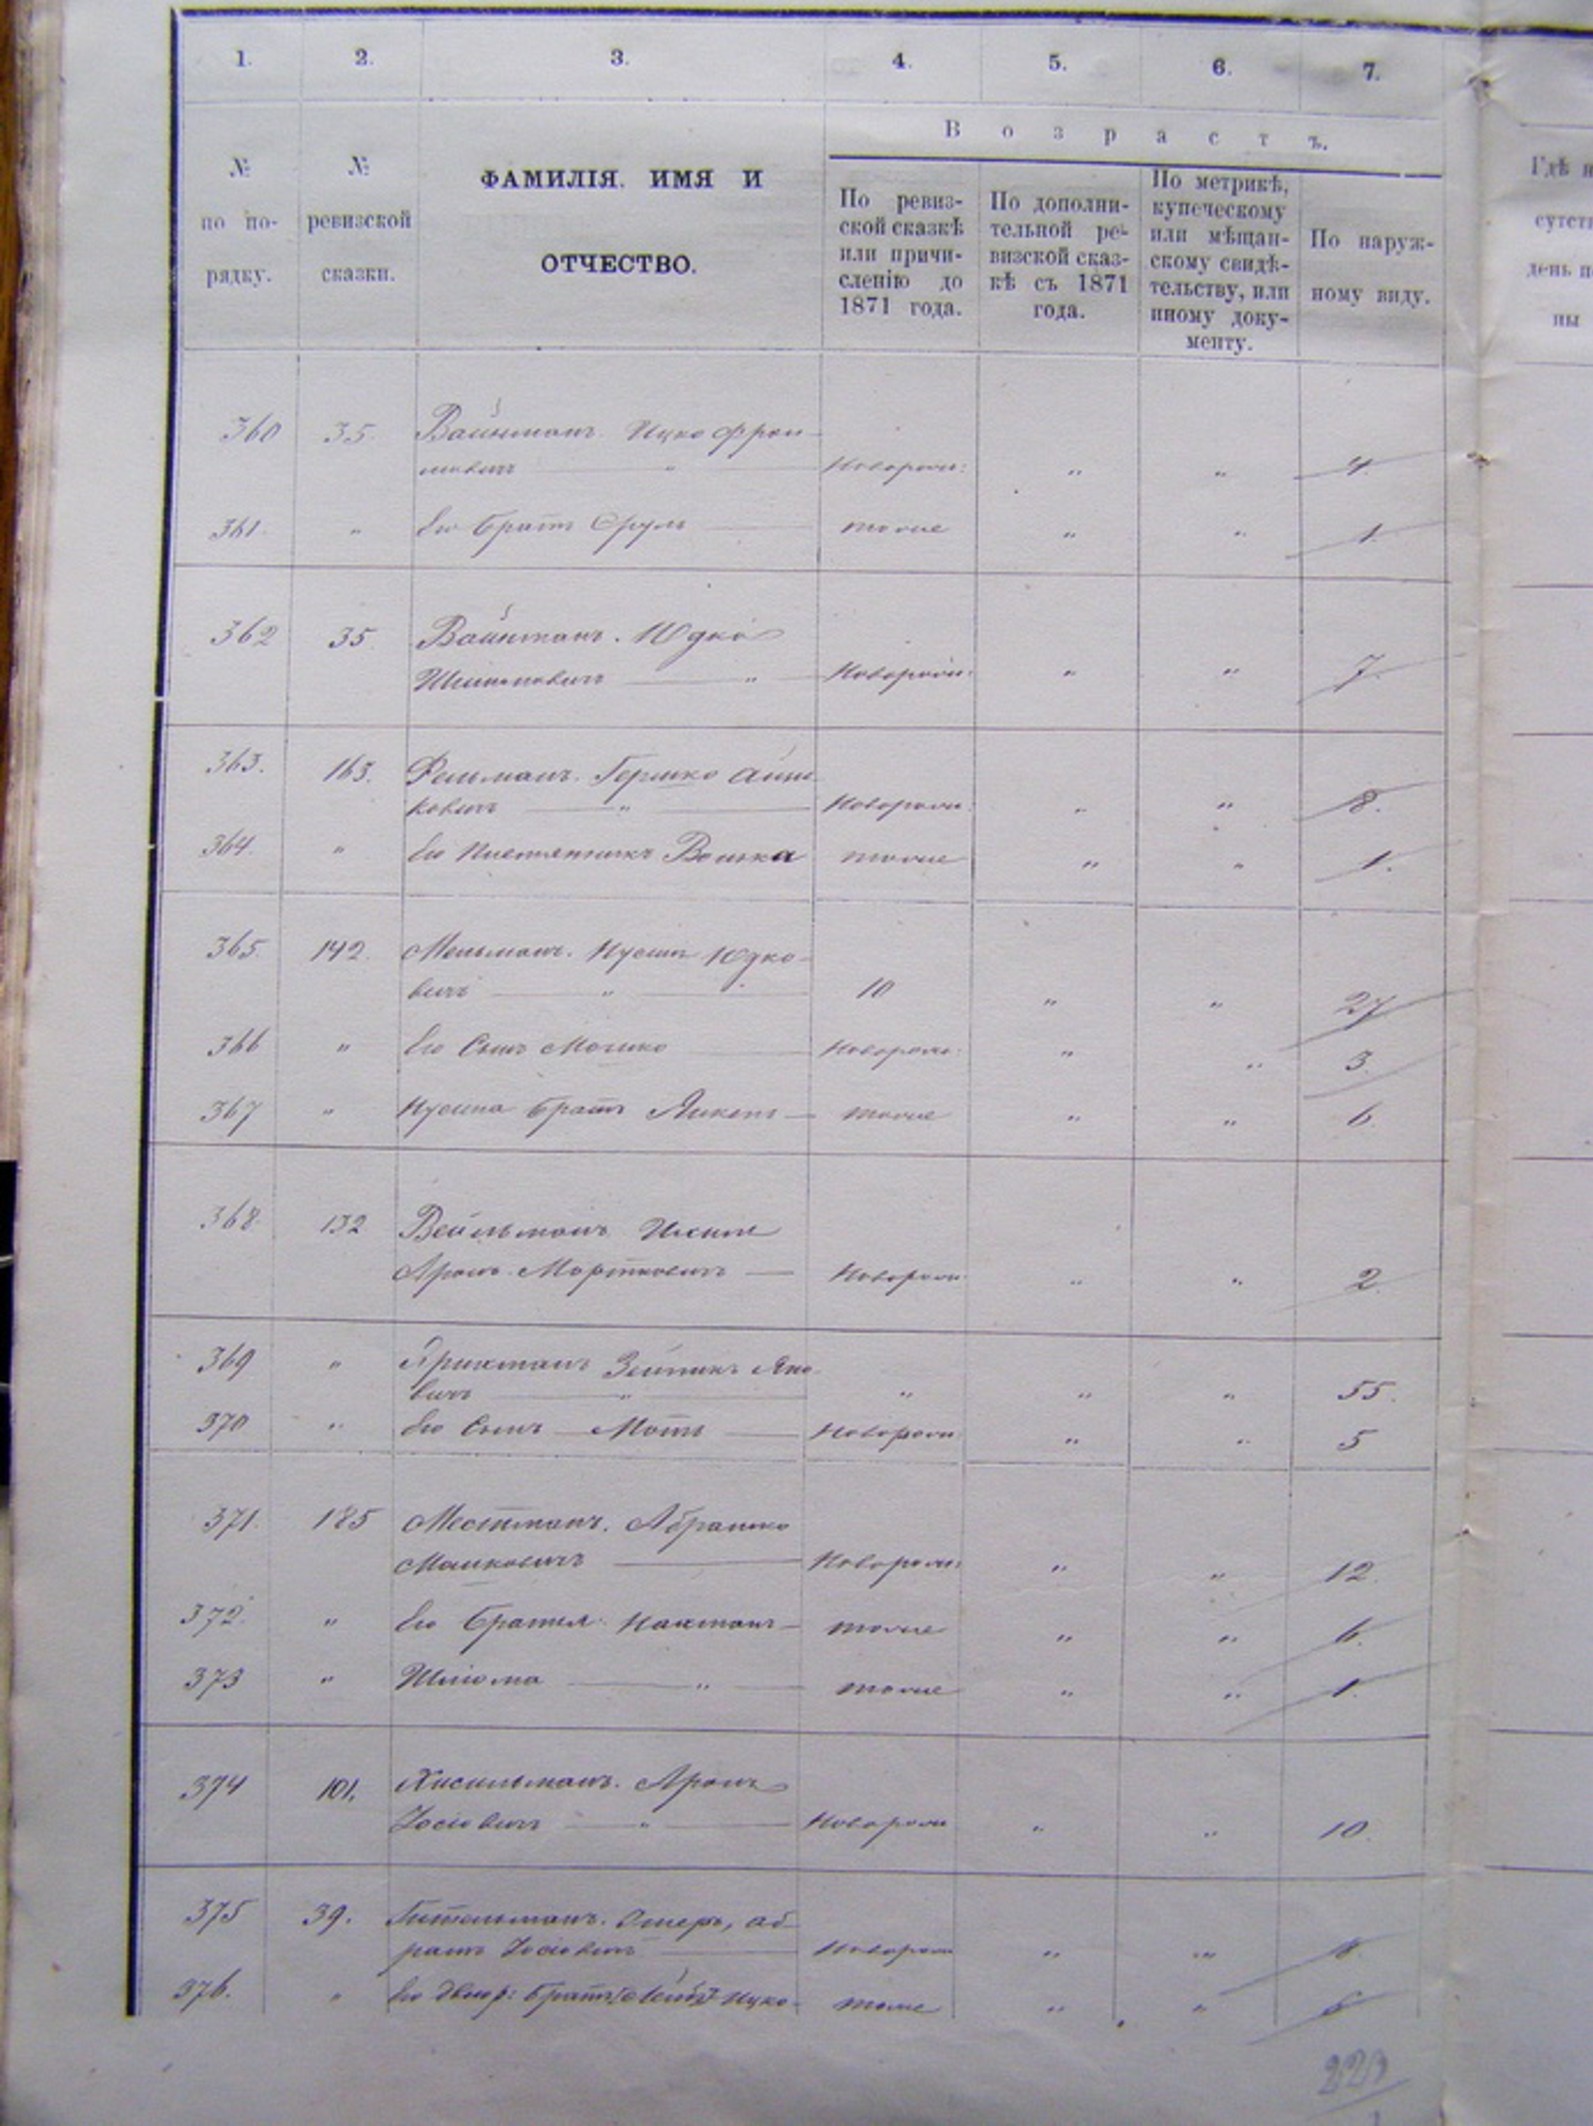 1. 2. 3. 4. 5. 6. 7.
Возрастъ.
№ по по-рядку.
№ ревизской сказки.
ФАМИЛІЯ. ИМЯ И
ОТЧЕСТВО.
По ревиз-
ской сказкѣ
или причи-
сленію до
1871 года.
По дополни-
тельной ре-
визской сказ-
кѣ съ 1871
года.
По метрикѣ,
купеческому
или мѣщан-
скому свидѣ-
тельству, или
иному доку-
менту.
По наруж-
ному виду.
Гдѣ
день
ны
360 35. Вайнманъ. Ицко Фрои-
мовичъ " Новорожд: " " 4.
361. " Его братъ Сруль тоже " " 1.
362 35 Вайнманъ. Юдко
Шимоновичъ " Новорожд: " " 7.
363. 163. Фельманъ. Гершко Айзи
ковичъ " Новорожд: " " 8.
364. " Его племянникъ Волька тоже " " 1.
365. 142. Мельманъ. Нусинъ Юдко-
вичъ " 10 " " 27
366 " Его сынъ Мошко Новорожд: " " 3.
367 " Нусина братъ Янкель тоже " " 6.
368. 132 Вейсманъ
Аронъ Мортковичъ Новорожд: " " 2.
369 " Зейликъ Янко-
вичъ " " " " 55.
370 " Его сынъ Мотя Новорожд: " " 5
371. 185 Местманъ. Абрамко
Манковичъ Новорожд: " " 12.
372. " Его братья: Нахманъ тоже " " 6.
373 " Шлiома " тоже " " 1.
374 101. Хисильманъ. Аронъ
Іосіовичъ " Новорожд " " 10.
375 39. Гительманъ. Ошеръ, Аб-
рамъ Іосіовичъ Новорожд " " 8
376. " Его двоюр: братъ Лейзоръ Ицко- тоже " " 6